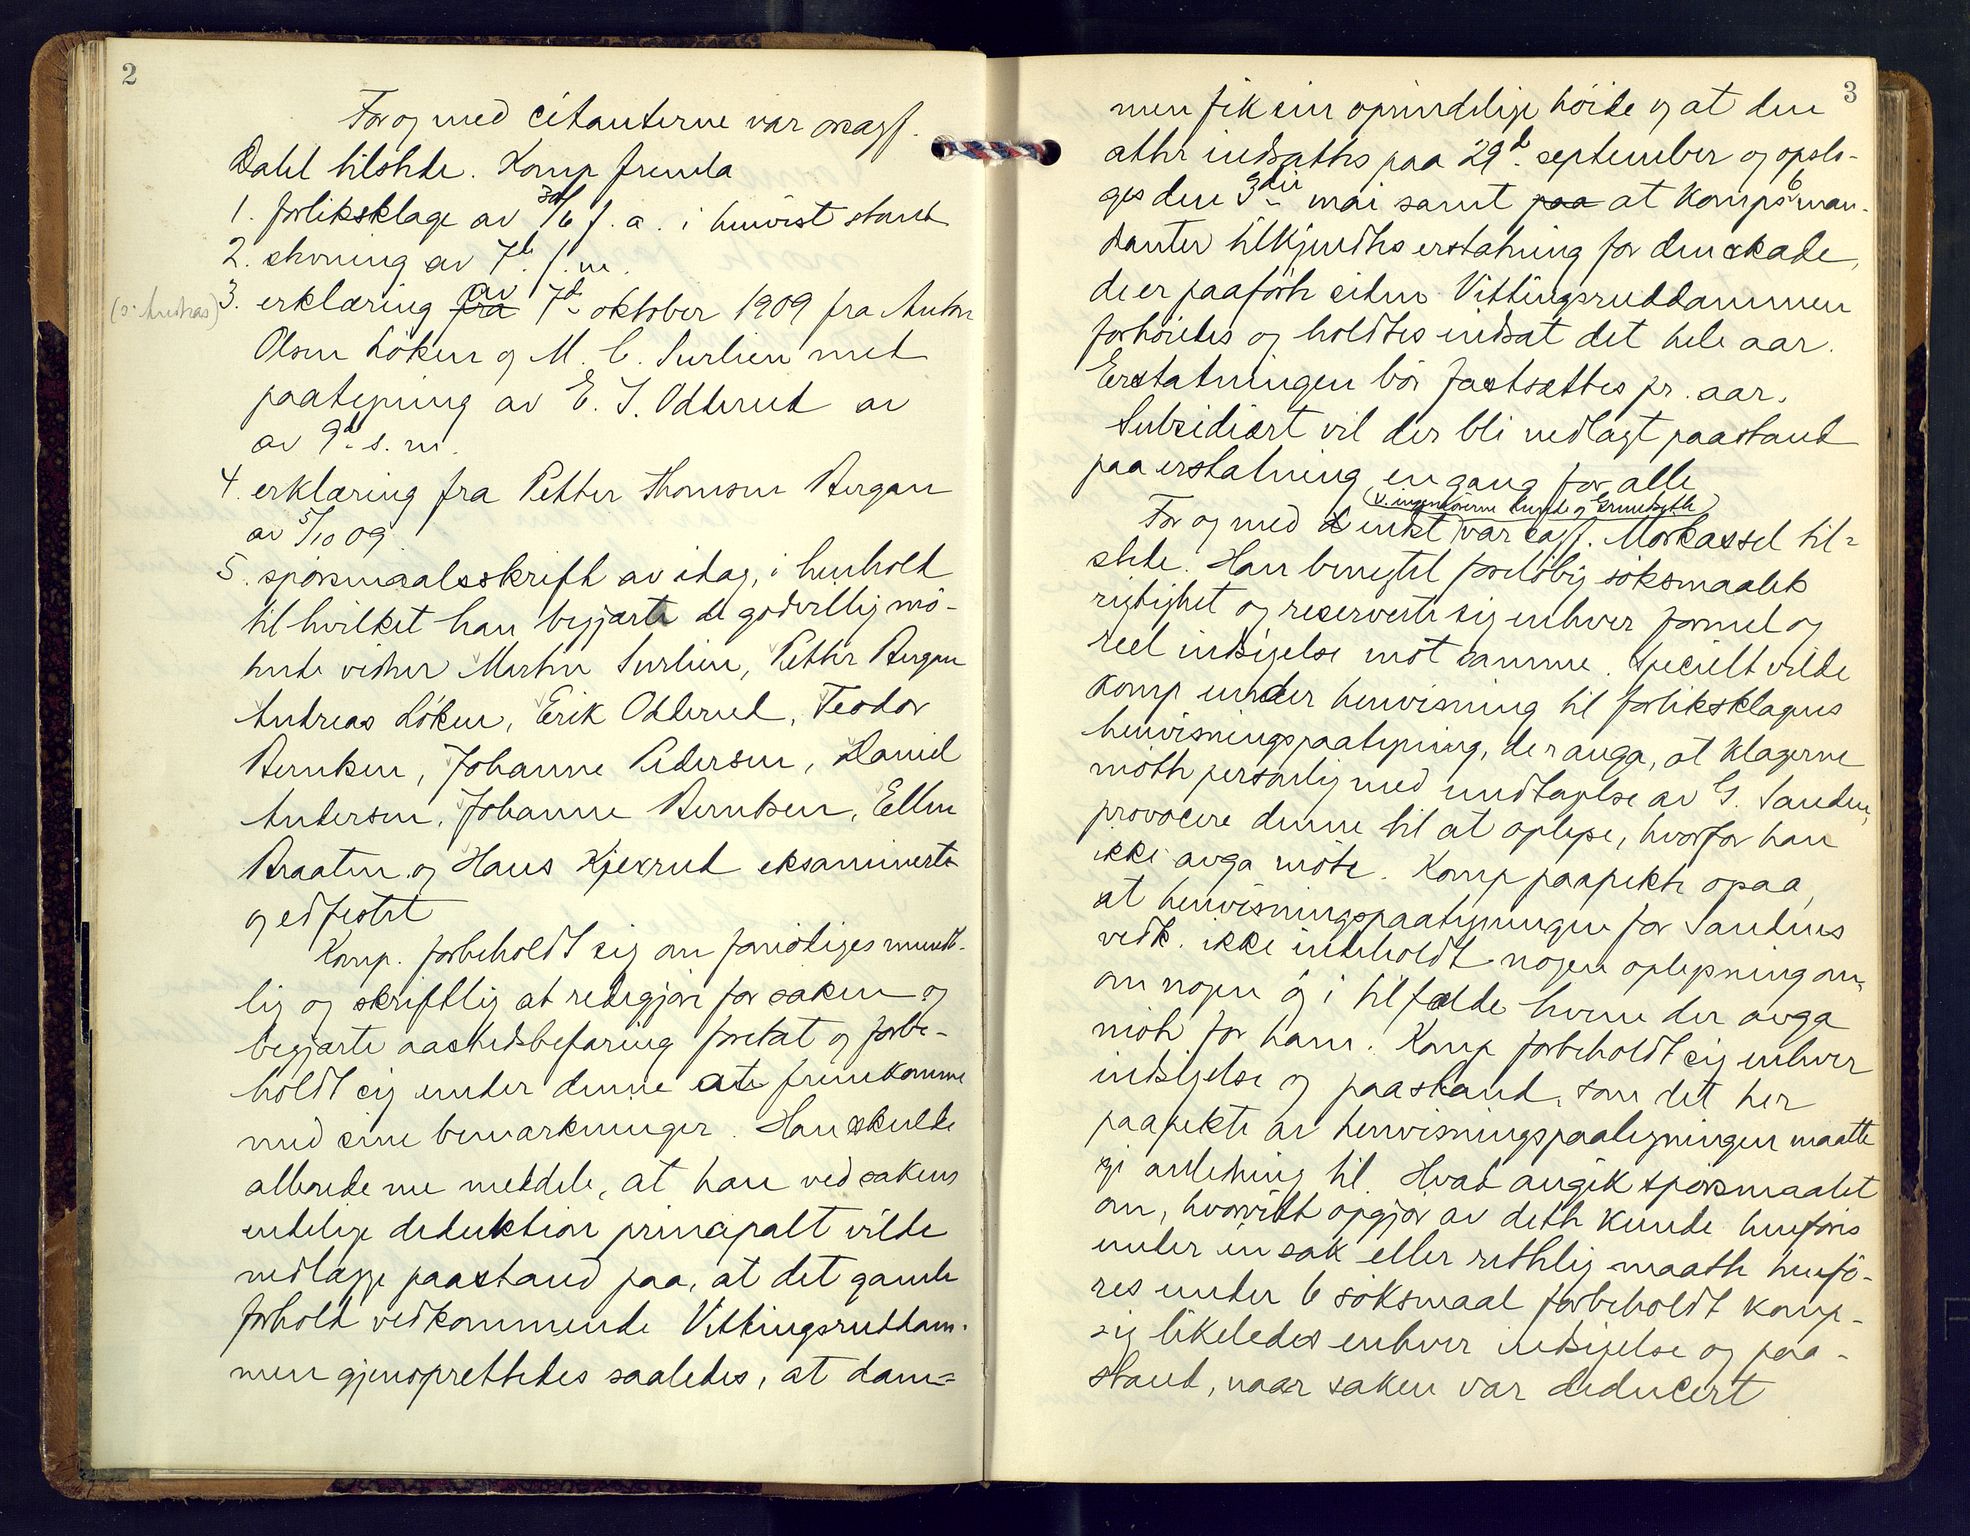 2
For og med citanterne var osagf.
Dahl tilstede. Komp fremla
1. forliksklage av 30/6 f. a. i henvist stand
2. stevning av 7d. f. m.
(o: Andreas) 3. erklæring fra av 7d oktober 1909 fra Anton
Olsen Löken og M. C. Surlien med
paategning av E. J. Odderud av
av 9d s. m.
4. erklæring fra Petter Thomsen Bergan
av 5/10 09
5. spörsmaalsskrift av idag, i henhold
til hvilket han begjærte de godvillig mö-
tende vidner Martin Surlien, Petter Bergan
Andreas Löken, Erik Odderud, Teodor
Berntsen, Johanne Pedersen, Daniel
Andersen, Johanne Berntsen, Ellen
Braaten og Hans Kjexrud eksaminerte
og edfestet
Komp. forbeholdt sig om fornödiges mundt-
lig og skriftlig at redegjöre for saken og
begjærte aastedsbefaring foretat og forbe-
holdt sig under denne at fremkomme
med sine bemærkninger. Han skulde
allerede nu meddele, at han ved sakens
endelige deduktion principalt vilde
nedlægge paastand paa, at det gamle
forhold vedkommende Vittingsruddam-
men gjenoprettedes saaledes, at dam=
3
men fik sin oprindelige höide og at den
atter indsattes paa 29d. september og opslo-
ges den 3die mai samt paa at Komps 6 man-
danter tilkjendtes erstatning for den skade,
de er paafört siden Vittingsruddammen
forhöiedes og holdtes indsat det hele aar.
Erstatningen bör fastsættes pr. aar.
Subsidiært vil der bli nedlagt paastand
paa erstatning en gang for alle
(v. ingeniörerne
For og med indst var sagf. Morkassel til=
stede. Han benegtet forelöbig söksmaalets
rigtighet og reserverte sig enhver formel og
reel indsigelse mot samme. Specielt vilde
Komp under henvisning til forliksklagens
henvisningspaategning, der anga, at klagerne
mötte personlig med undtagelse av G. Sanden,
provocere denne til at oplyse, hvorfor han
ikke anga möte. Komp paapekte osaa,
at henvisningspaategningen for Sandens
vedk. ikke indeholdt nogen oplysning om,
om nogen og i tilfælde hvem der avga
möte for ham. Komp forbeholdt sig enhver
indsigelse og paastand, som det her
paapekte av henvisningspaategningen maatte
gi anledning til. Hvad angik spörsmaalet
om, hvorvidt opgjör av dette kunde henföres
under en sak eller rettelig maatte henfö-
res under 6 söksmaal forbeholdt komp-
sig likeledes enhver indsigelse og paa-
stand, naar saken var deducert